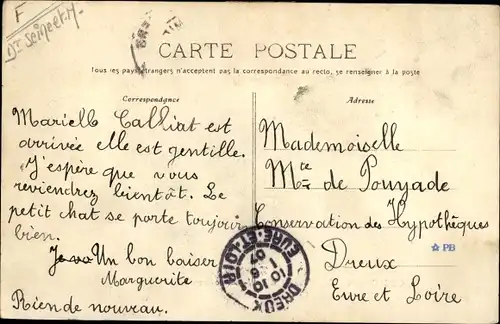 F
Dt Seine et M.
CARTE POSTALE
Tous les pays étrangers n'acceptent pas la correspondance au recto, se renseigner à la poste
Correspondance
Marielle Calliat est
arrivée elle est gentille.
J'espère que vous
reviendrez bientôt. Le
petit chat se porte toujour
bien.
Un bon baiser
Marguerite
Rien de nouveau.
Adresse
Mademoiselle
Mte de Pouyade
Conservation des Hypothèques
Dreux
Eure et Loire
DREUX
EURE-ET-LOIR
PB